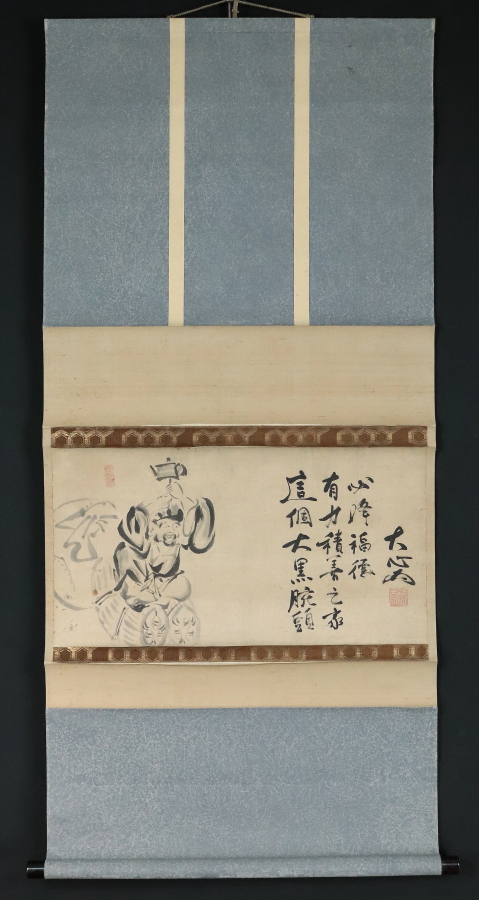 這個大黒腕頭
有力積善之家
必降福徳
大心